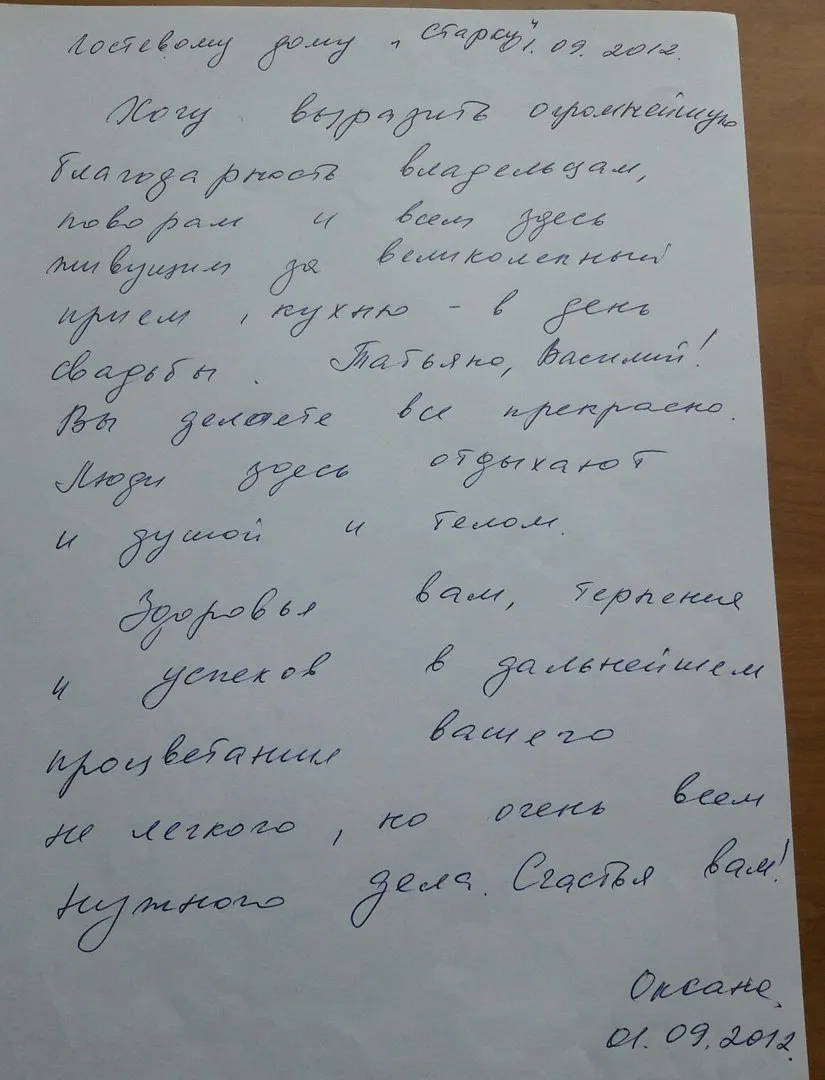 Гостевому дому „Старку" 01.09.2012.
Хочу выразить огромнейшую
благодарность владельцам,
поворам и всем здесь
живущим за великолепный
прием, кухню - в день
свадьбы. Татьяна, Василий!
Вы делаете все прекрасно.
Люди здесь отдыхают
и душой и телом.
Здоровья вам, терпения
и успехов в дальнейшем
процветании вашего
не легкого, но очень всем
нужного дела. Счастья вам!
Оксана,
01.09.2012.